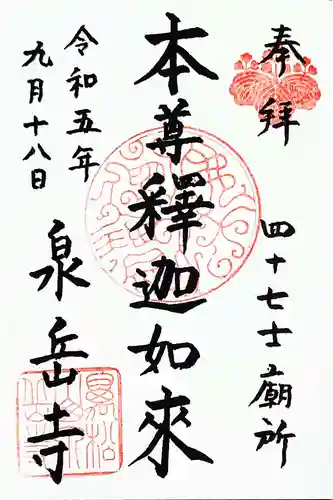 奉拝
四十七士廟所
本尊釋迦如來
令和五年
九月十八日
泉岳寺